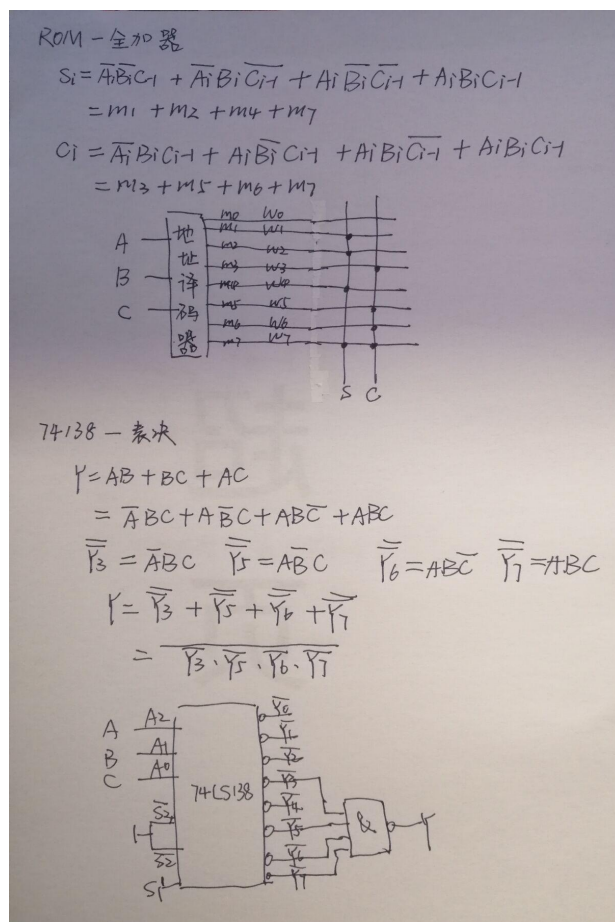 ROM — 全加器
Si = A̅i̅B̅i̅Ci-1 + A̅i̅ Bi C̅i̅-̅1̅ + Ai B̅i̅ C̅i̅-̅1̅ + AiBiCi-1
= m1 + m2 + m4 + m7
Ci = A̅i̅ BiCi-1 + Ai B̅i̅ Ci-1 + AiBi C̅i̅-̅1̅ + AiBiCi-1
= m3 + m5 + m6 + m7
m0 W0
m1 W1
A 地 m2 W2
址 m3 W3
B 译 m4 W4
C 码 m5 W5
m6 W6
器 m7 W7
S C
74138 — 表决
Y = AB + BC + AC
= A̅BC + AB̅C + ABC̅ + ABC
Y̿3 = A̅BC Y̿5 = AB̅C Y̿6 = ABC̅ Y̿7 = ABC
Y = Y̿3 + Y̿5 + Y̿6 + Y̿7
= \overline{Y̅3 · Y̅5 · Y̅6 · Y̅7}
Y̅0
A A2 Y̅1
B A1 Y̅2
C A0 Y̅3
74LS138 Y̅4
& Y
Y̅5
S̅2̅
Y̅6
Y̅7
S1